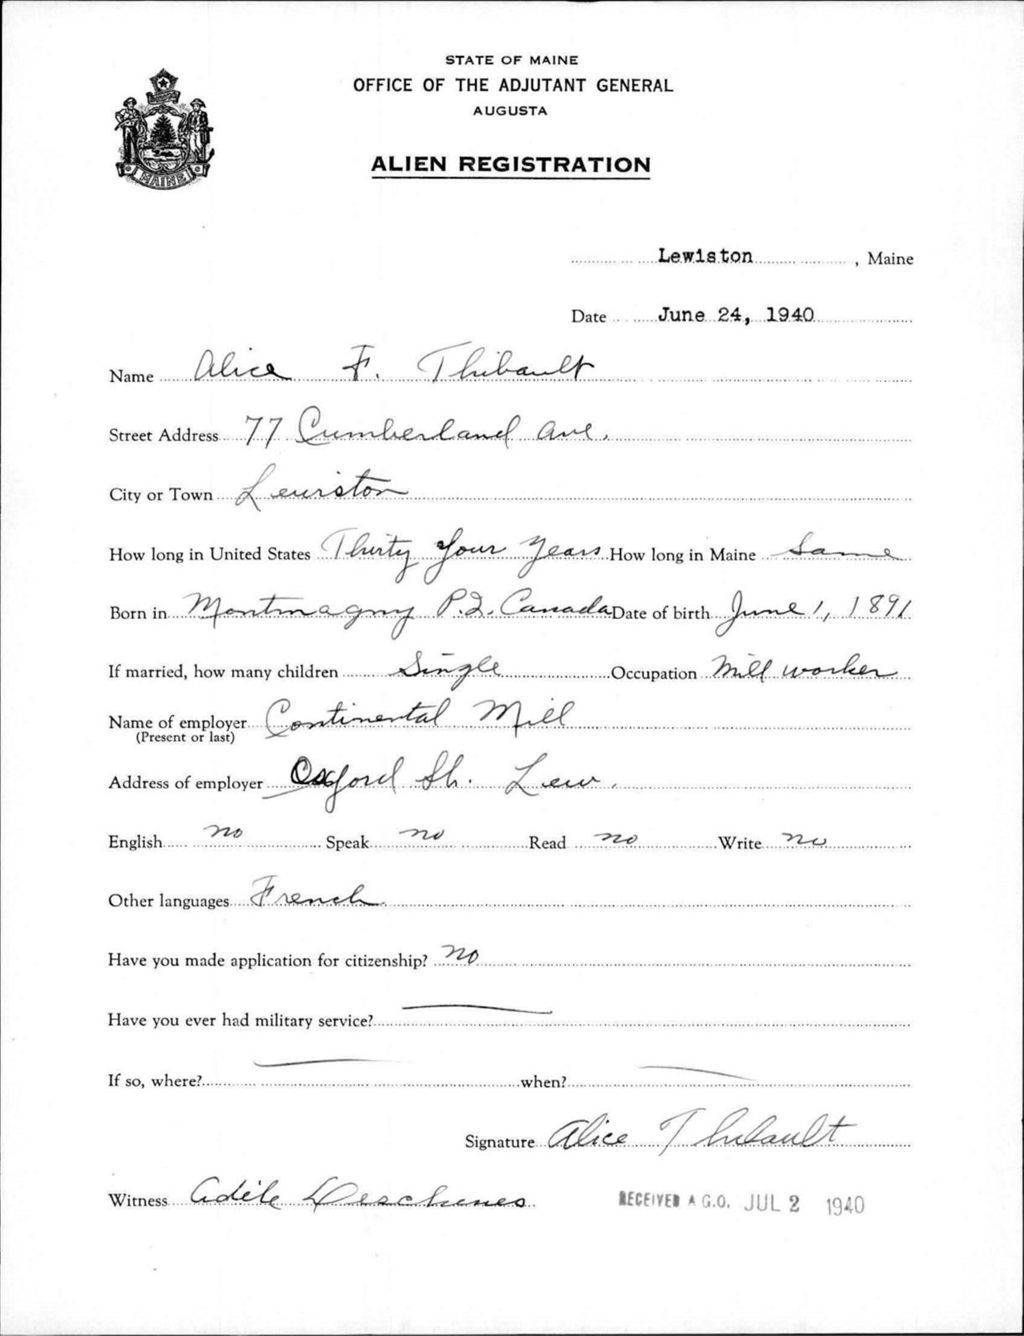 STATE OF MAINE
OFFICE OF THE ADJUTANT GENERAL
AUGUSTA
ALIEN REGISTRATION
MAINE
Lewiston, Maine
Date June 24, 1940
Name Alice F. Thibault
Street Address 77 Cumberland Ave.
City or Town Lewiston
How long in United States Thirty Four Years How long in Maine Same
Born in Montmagny P.Q. Canada Date of birth June 1, 1891
If married, how many children Single Occupation Mill worker
Name of employer Continental Mill
(Present or last)
Address of employer Oxford St. Lew.
English no Speak no Read no Write no
Other languages French
Have you made application for citizenship? no
Have you ever had military service?
If so, where? when?
Signature Alice Thibault
Witness Adèle Deschenes
RECEIVED A.G.O. JUL 2 1940